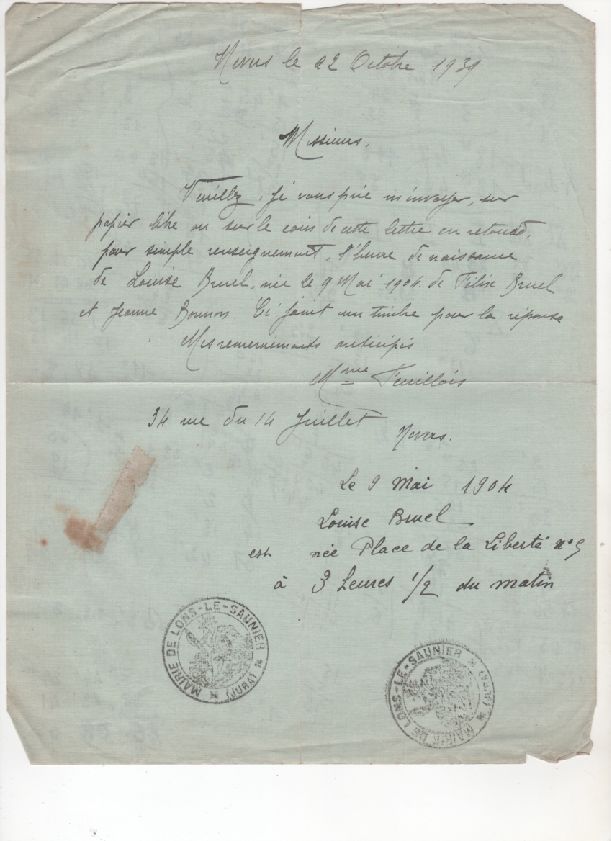 Nevers le 22 Octobre 1931
Messieurs,
Veuillez, je vous prie m'envoyer, sur
papier libre ou sur le coin de cette lettre en retour,
pour simple renseignement, l'heure de naissance
de Louise Bruel, née le 9 Mai 1904 de Félix Bruel
et Jeanne Ci joint un timbre pour la réponse
Mes remerciements anticipés
Mme Feuillois
34 rue du 14 Juillet
Nevers.
Le 9 Mai 1904
Louise Bruel
est née Place de la Liberté n° 5
à 3 heures 1/2 du matin
MAIRIE DE LONS-LE-SAUNIER * (JURA) *
MAIRIE DE LONS-LE-SAUNIER * (JURA) *